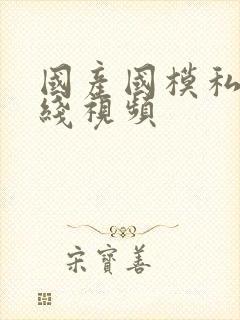 國產國模私
綫視頻
宋寶善